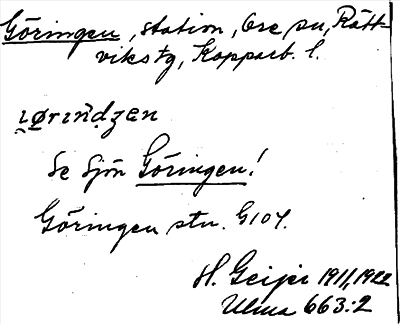 Göringen, station, Ore sn, Rätt-
vikstg, Kopparb. l.
ıørındzen
Se Sjön Göringen!
Göringen stn. G104.
H. Geijer 1911, 1922
Ulma 663:2